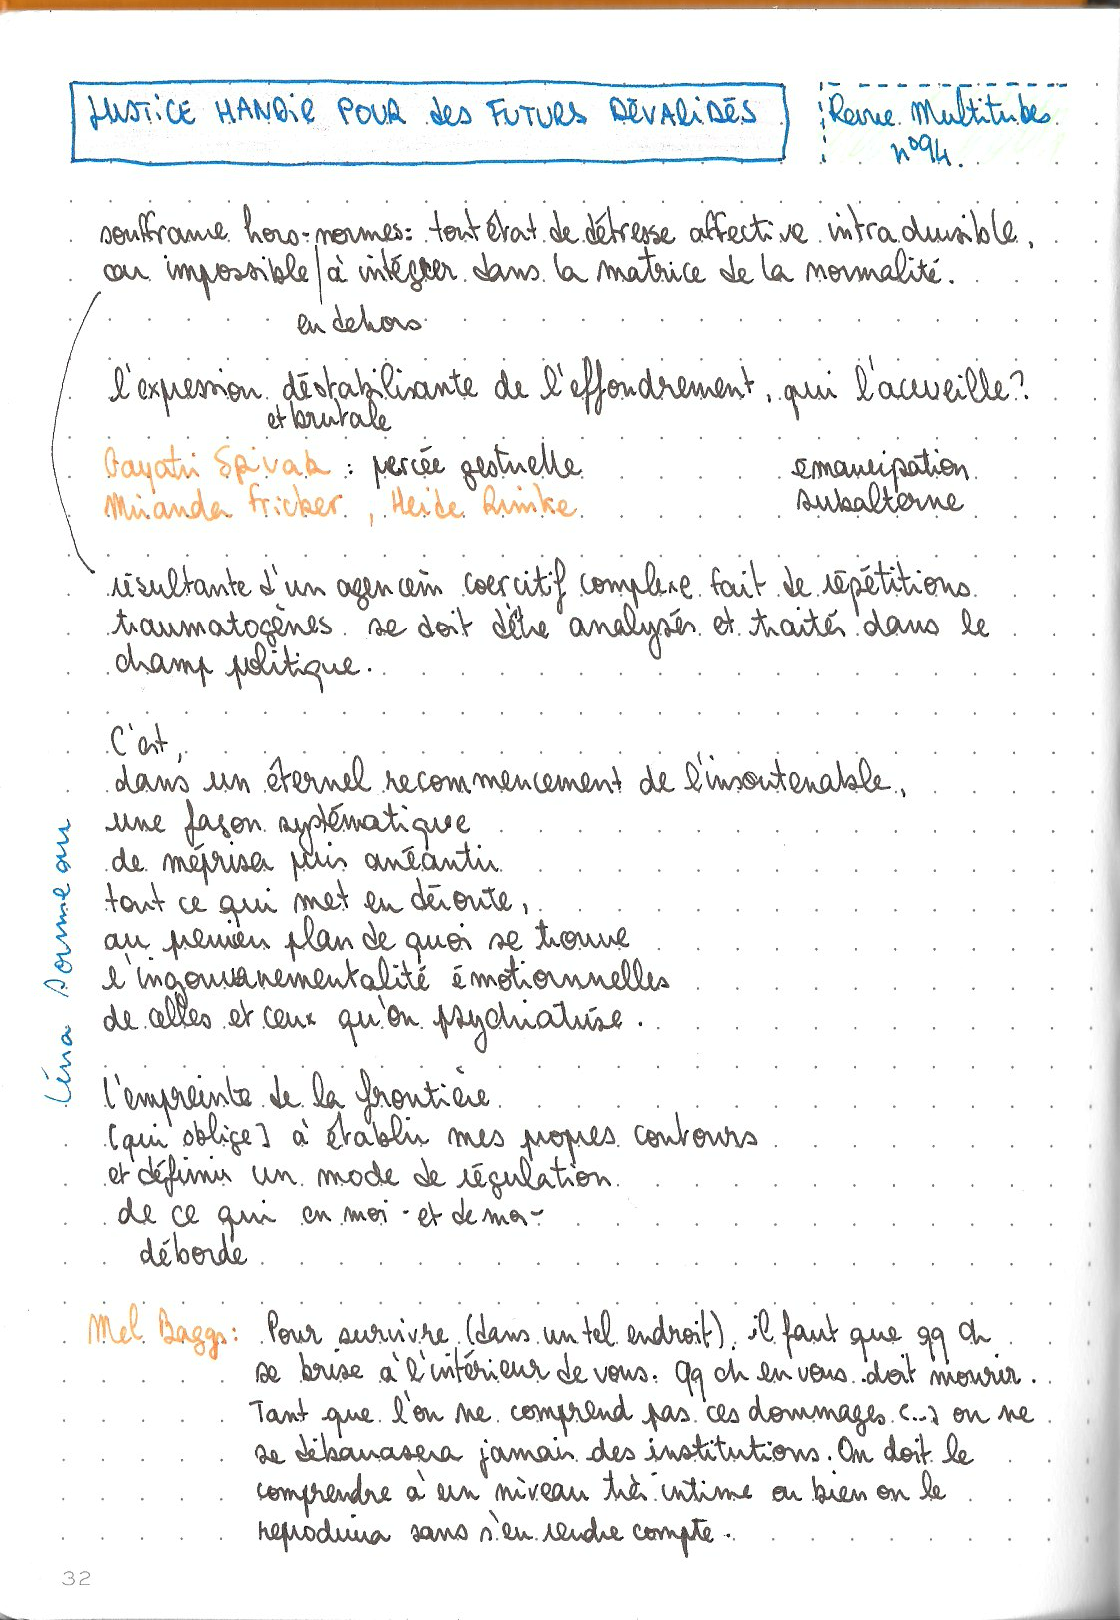 JUSTICE HANDIE POUR des FUTURS DÉVALIDÉS
Revue Multitudes
n°94.
souffrance hors-normes: tout état de détresse affective intraduisible,
ou impossible à intégrer dans la matrice de la normalité.
en dehors
l'expression déstabilisante de l'effondrement, qui l'accueille?
et brutale
Gayatri Spivak : percée gestuelle
émancipation
Miranda Fricker, Heide Rimke
subalterne
résultante d'un agencem coercitif complexe fait de répétitions
traumatogènes se doit d'être analysés et traités dans le
champ politique.
C'est,
dans un éternel recommencement de l'insoutenable,
une façon systématique
de mépriser puis anéantir
tout ce qui met en déroute,
au premier plan de quoi se trouve
l'ingouvernementalité émotionnelles
de celles et ceux qu'on psychiatrise.
Léna Dormeau
l'empreinte de la frontière
[qui oblige] à établir mes propres contours
et définir un mode de régulation
de ce qui en moi - et de moi -
déborde
Mel Baggs: Pour survivre (dans un tel endroit), il faut que qq ch
se brise à l'intérieur de vous. Qq ch en vous doit mourir.
Tant que l'on ne comprend pas ces dommages (...) on ne
se débarrassera jamais des institutions. On doit le
comprendre à un niveau très intime ou bien on le
reproduira sans s'en rendre compte.
32